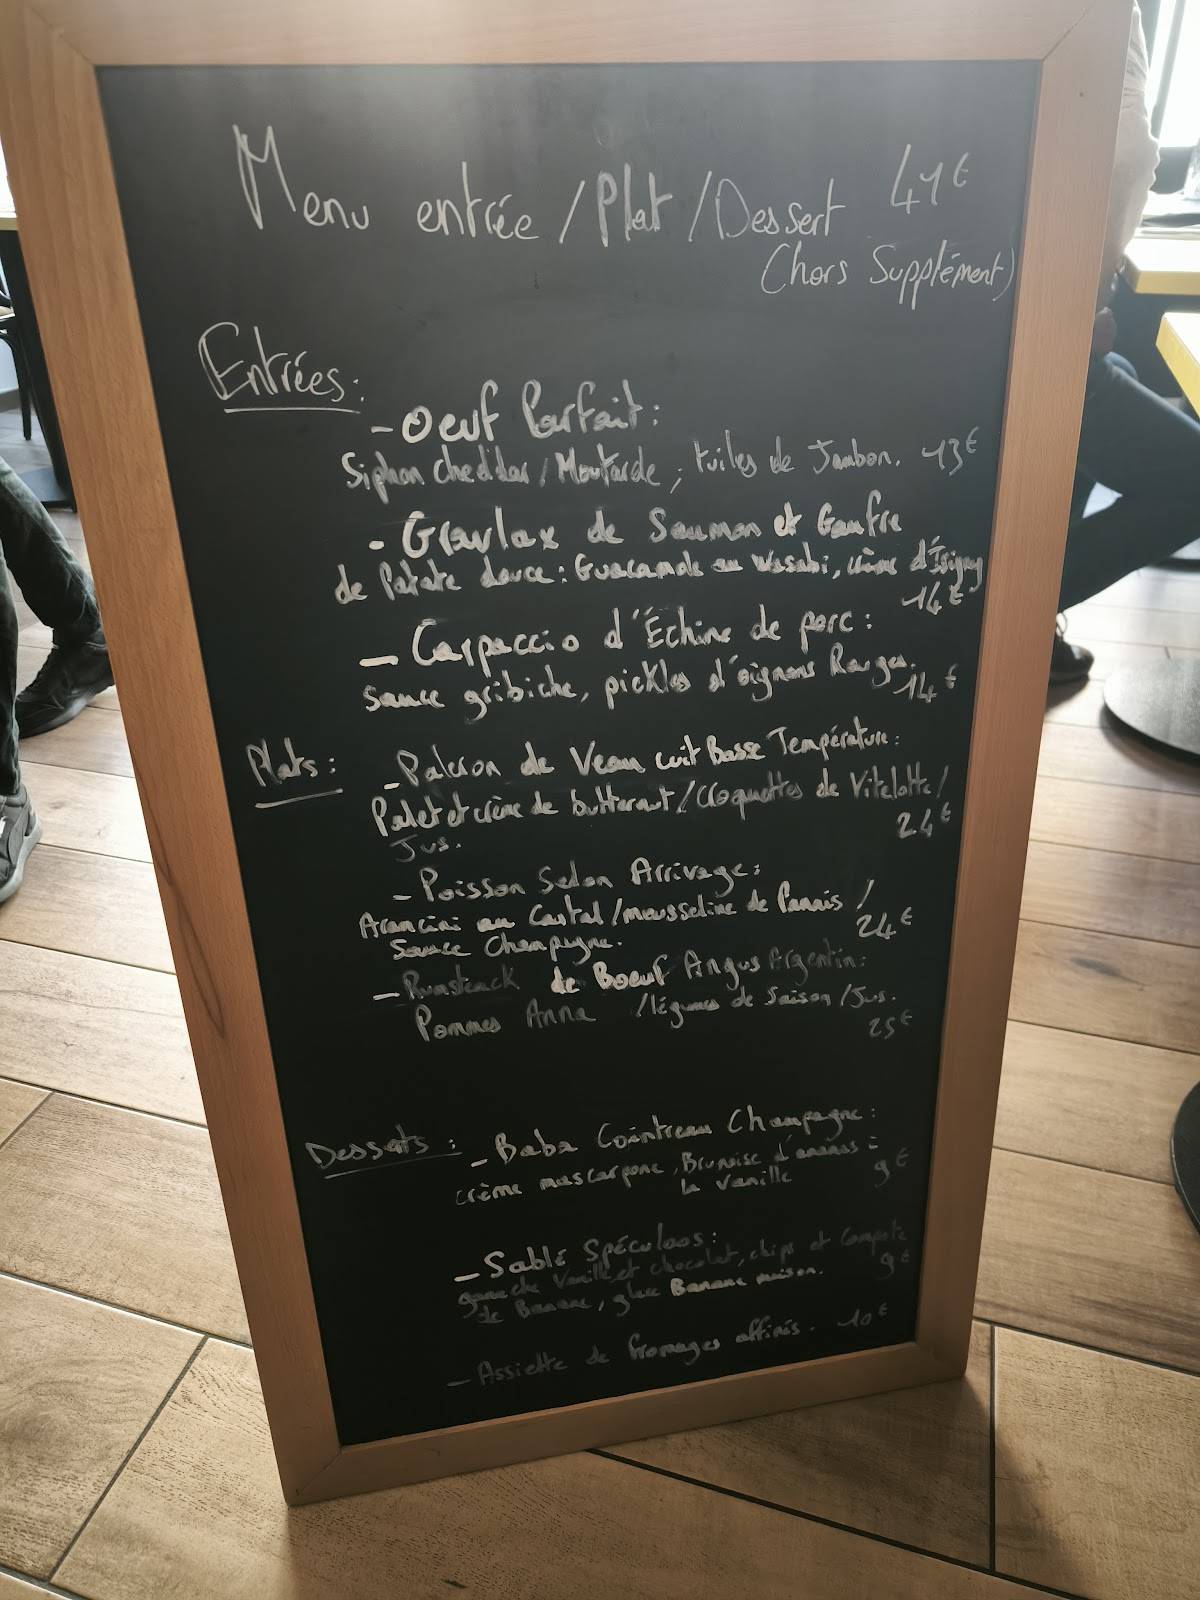 Menu entrée / Plat / Dessert 41€
(hors Supplément)
Entrées :
- Oeuf Parfait :
Siphon cheddar / Moutarde, tuiles de Jambon. 13€
- Gravlax de Saumon et Gaufre
de Patate douce : Guacamole au Wasabi, crème d'Isigny
14€
- Carpaccio d'Échine de porc :
Sauce gribiche, pickles d'oignons Rouges.
14€
Plats :
- Paleron de Veau cuit Basse Température :
Palet et crème de butternut / Croquettes de Vitelotte /
Jus.
24€
- Poisson Selon Arrivage :
Arancini au Cantal / mousseline de Panais /
Sauce Champagne.
24€
- Rumsteack de Boeuf Angus Argentin :
Pommes Anna / légumes de Saison / Jus.
25€
Desserts :
- Baba Cointreau Champagne :
crème mascarpone, Brunoise d'ananas à
la vanille
9€
- Sablé Spéculoos :
ganache Vanille et chocolat, chips et Compote
de Banane, glace Banane maison.
9€
- Assiette de fromages affinés. 10€